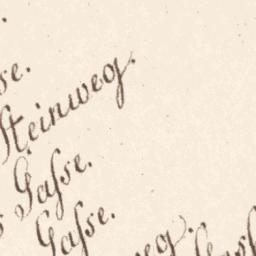 se.
Steinweg.
Gasse.
Gasse.
weg.